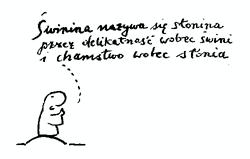 Świnina nazywa się słonina
przez delikatność wobec świni
i chamstwo wobec słonia